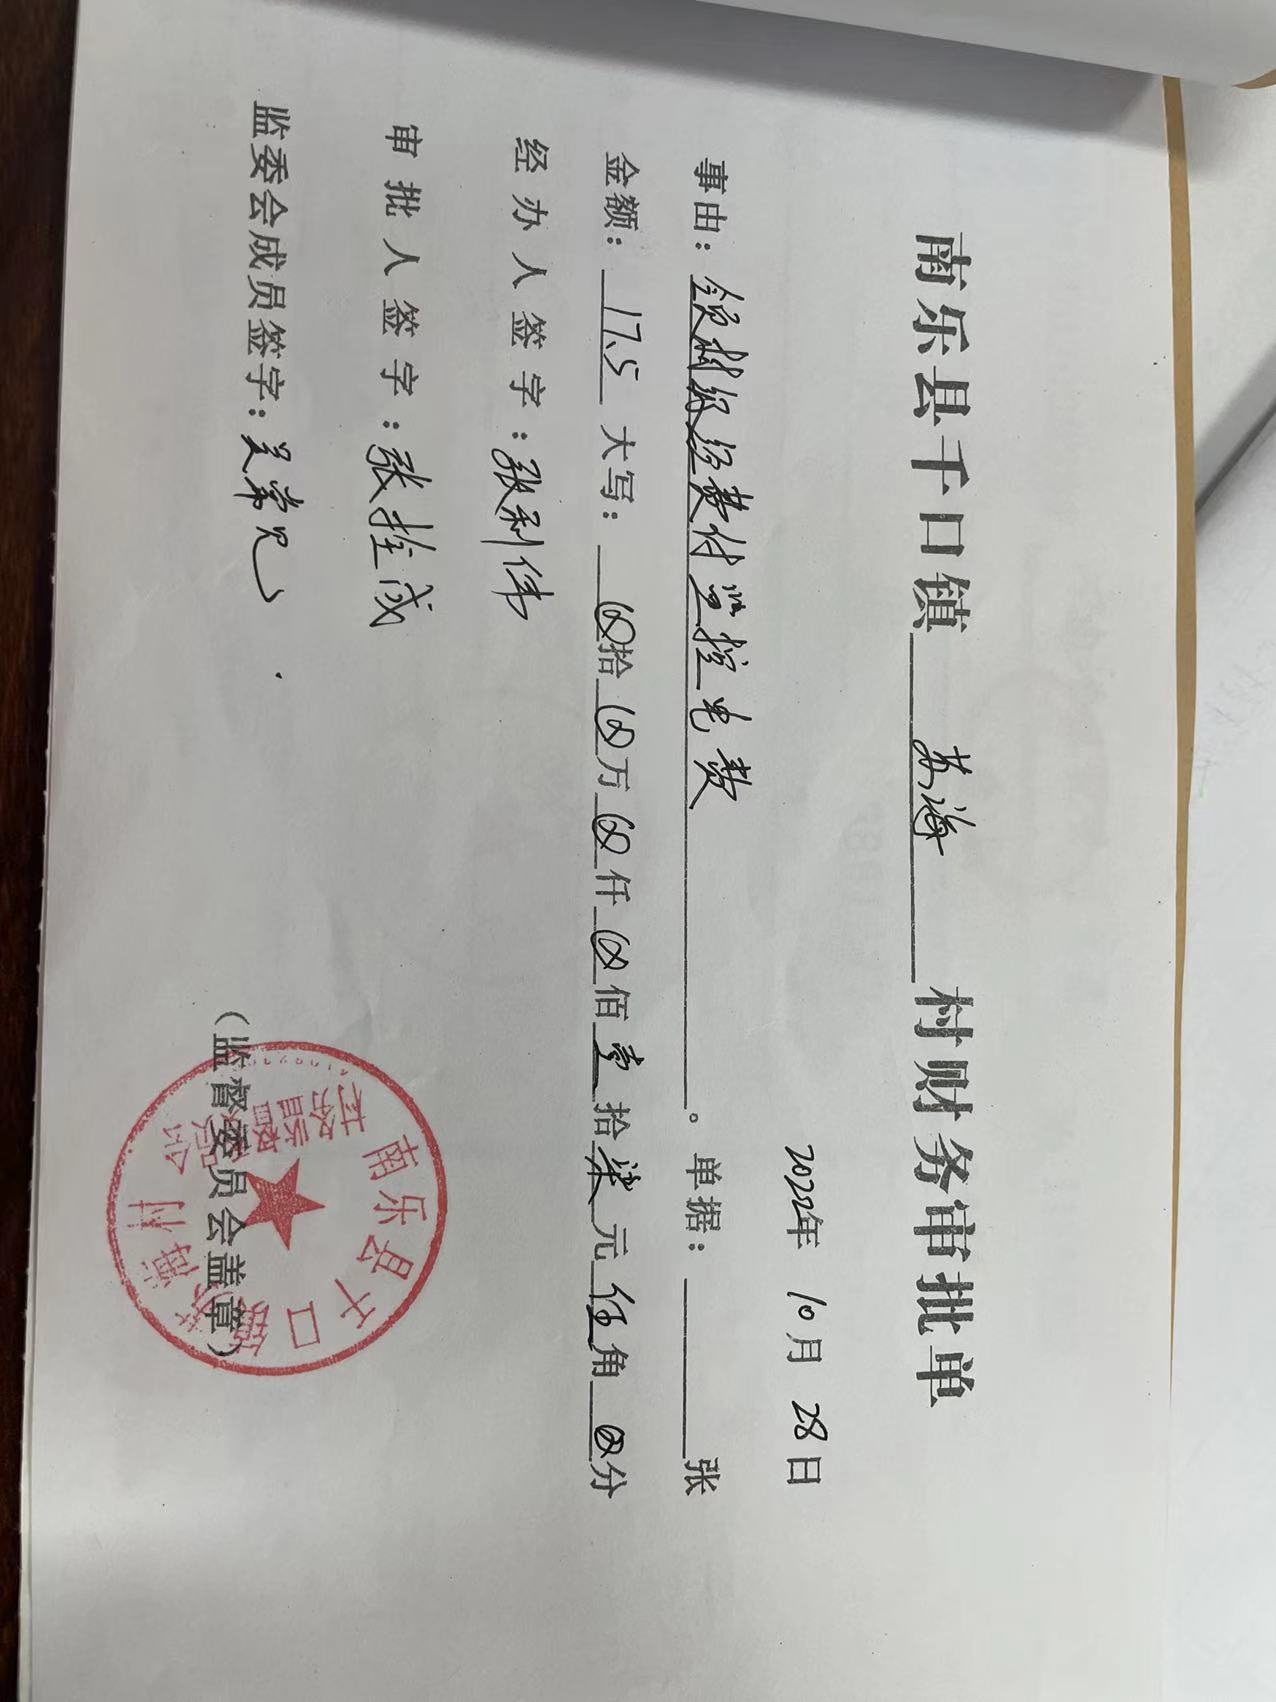 南乐县千口镇 苏海 村财务审批单
2022年 10月 28日
事由：领村级经费付监控电费。单据：张
金额：17.5 大写：⊗拾⊗万⊗仟⊗佰壹拾柒元伍角⊗分
经办人签字：张利伟
审批人签字：张拴成
监委会成员签字：
（监督委员会盖章）
南乐县千口镇苏海村
村务监督
委员会